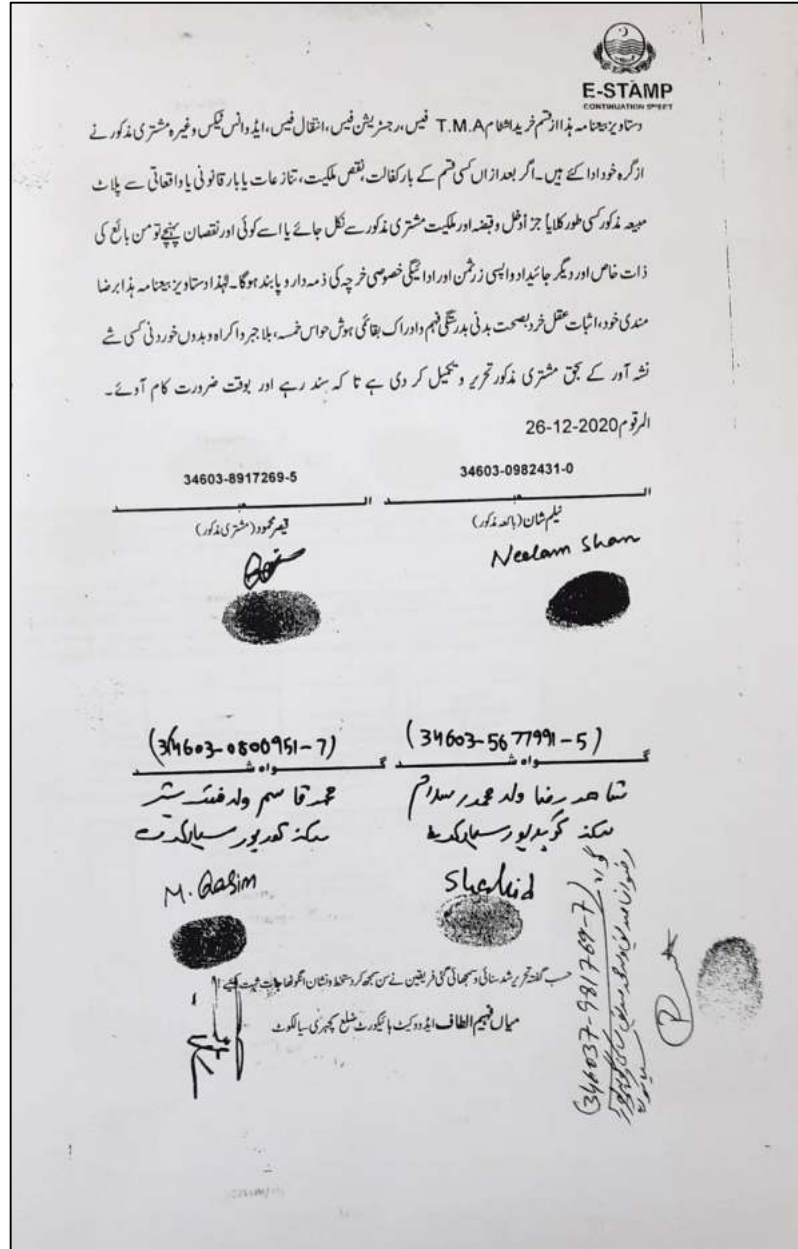 E-STAMP
CONTINUATION SHEET
دستاویز بیعنامہ ہذا از قسم خرید اشٹام T.M.A فیس، رجسٹریشن فیس، انتقال فیس، ایڈوانس ٹیکس وغیرہ مشتری مذکور نے
از گرہ خود ادا کئے ہیں۔ اگر بعد ازاں کسی قسم کے بار کفالت، نقص ملکیت، تنازعات یا بار قانونی یا واقعاتی سے پلاٹ
مبیعہ مذکور کسی طور کلایاً جزاً دخل و قبضہ اور ملکیت مشتری مذکور سے نکل جائے یا اسے کوئی اور نقصان پہنچے تو من بائع کی
ذات خاص اور دیگر جائیداد واپسی زرثمن اور ادائیگی خصوصی خرچہ کی ذمہ دار و پابند ہوگا۔ لہٰذا دستاویز بیعنامہ ہذا برضا
مندی خود، اثبات عقل خرد بصحت بدنی بدرستگی فہم و ادراک بقائمی ہوش حواس خمسہ، بلا جبر و اکراہ و بدوں خوردنی کسی شے
نشہ آور کے بحق مشتری مذکور تحریر و تکمیل کر دی ہے تا کہ سند رہے اور بوقت ضرورت کام آوئے۔
المرقوم 26-12-2020
34603-0982431-0
34603-8917269-5
العبد
العبد
نیلم شان (بائعہ مذکور)
قیصر محمود (مشتری مذکور)
Neelam Shan
(34603-5677991-5)
(34603-0800951-7)
گواہ شد
گواہ شد
شاھد رضا ولد محمد
محمد قاسم ولد
سکنہ گوہدپور سیالکوٹ
سکنہ سیالکوٹ
Shahid
M. Qasim
گواہ
(346037-981769-7)
حسب گفتہ تحریر شد سنائی و سمجھائی گئی فریقین نے سن سمجھ کر دستخط و نشان انگوٹھا جات ثبت کیئے۔
میاں فہیم الطاف ایڈووکیٹ ہائیکورٹ ضلع کچہری سیالکوٹ